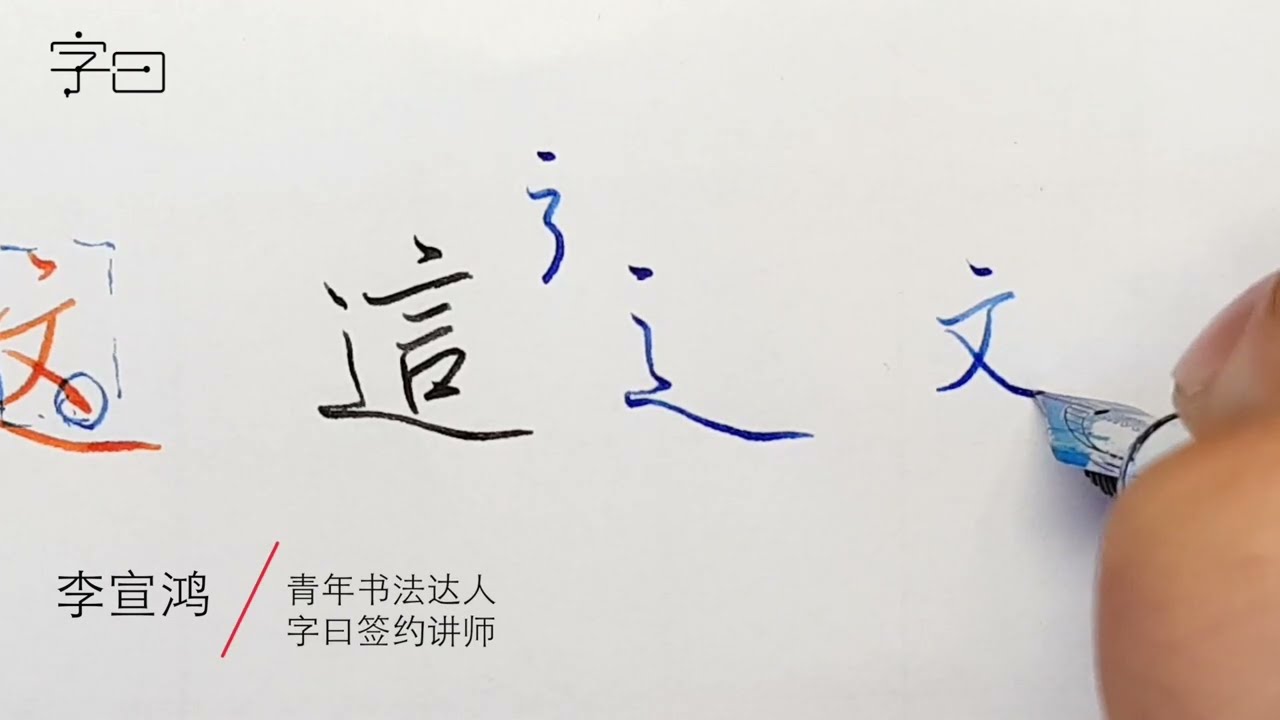 字曰
这 這 辶 文
李宣鸿
青年书法达人
字曰签约讲师